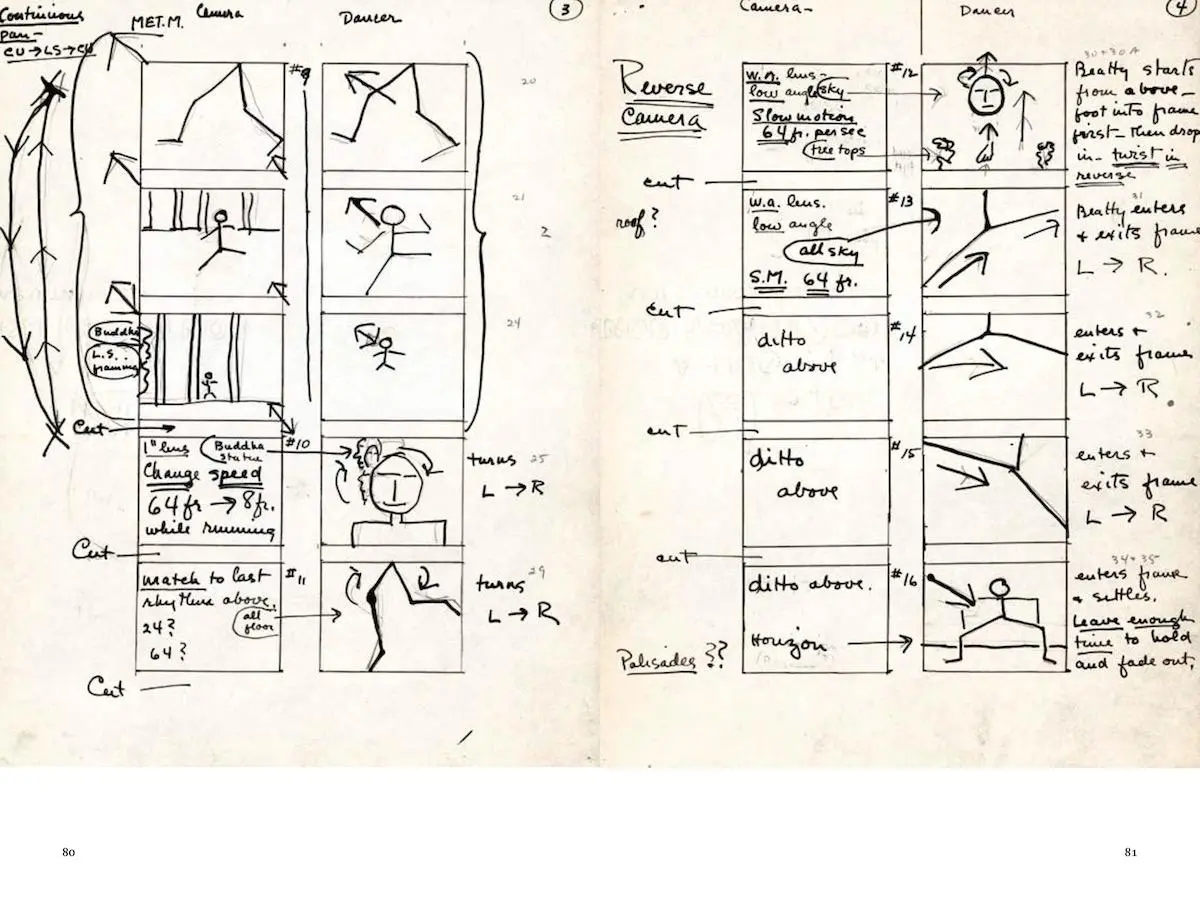 Continuious
pan—
CU → LS → CU
MET. M.
Camera
Dancer
3
#9
20
21
2
24
Buddha
L.S.
framing
Cut
1" lens
Buddha
statue
#10
Change speed
64 fr → 8 fr.
while running
turns 25
L → R
Cut
match to last
rhythm above.
24?
64?
all
floor
#11
29
turns
L → R
Cut
80
Camera—
Dancer
4
Reverse
Camera
W.A. lens—
low angle
sky
Slow motion
64 fr. per sec
tree tops
#12
30+30A
Beatty starts
from above—
foot into frame
first—then drop
in—twist in
reverse
cut
roof?
W.a. lens.
low angle
all sky
S.M. 64 fr.
#13
31
Beatty enters
+ exits frame
L → R.
cut
ditto
above
#14
32
enters +
exits frame
L → R
cut
ditto
above
#15
33
enters +
exits frame
L → R
cut
ditto above.
Horizon
Palisades ??
#16
34+35
enters frame
+ settles.
Leave enough
time to hold
and fade out.
81